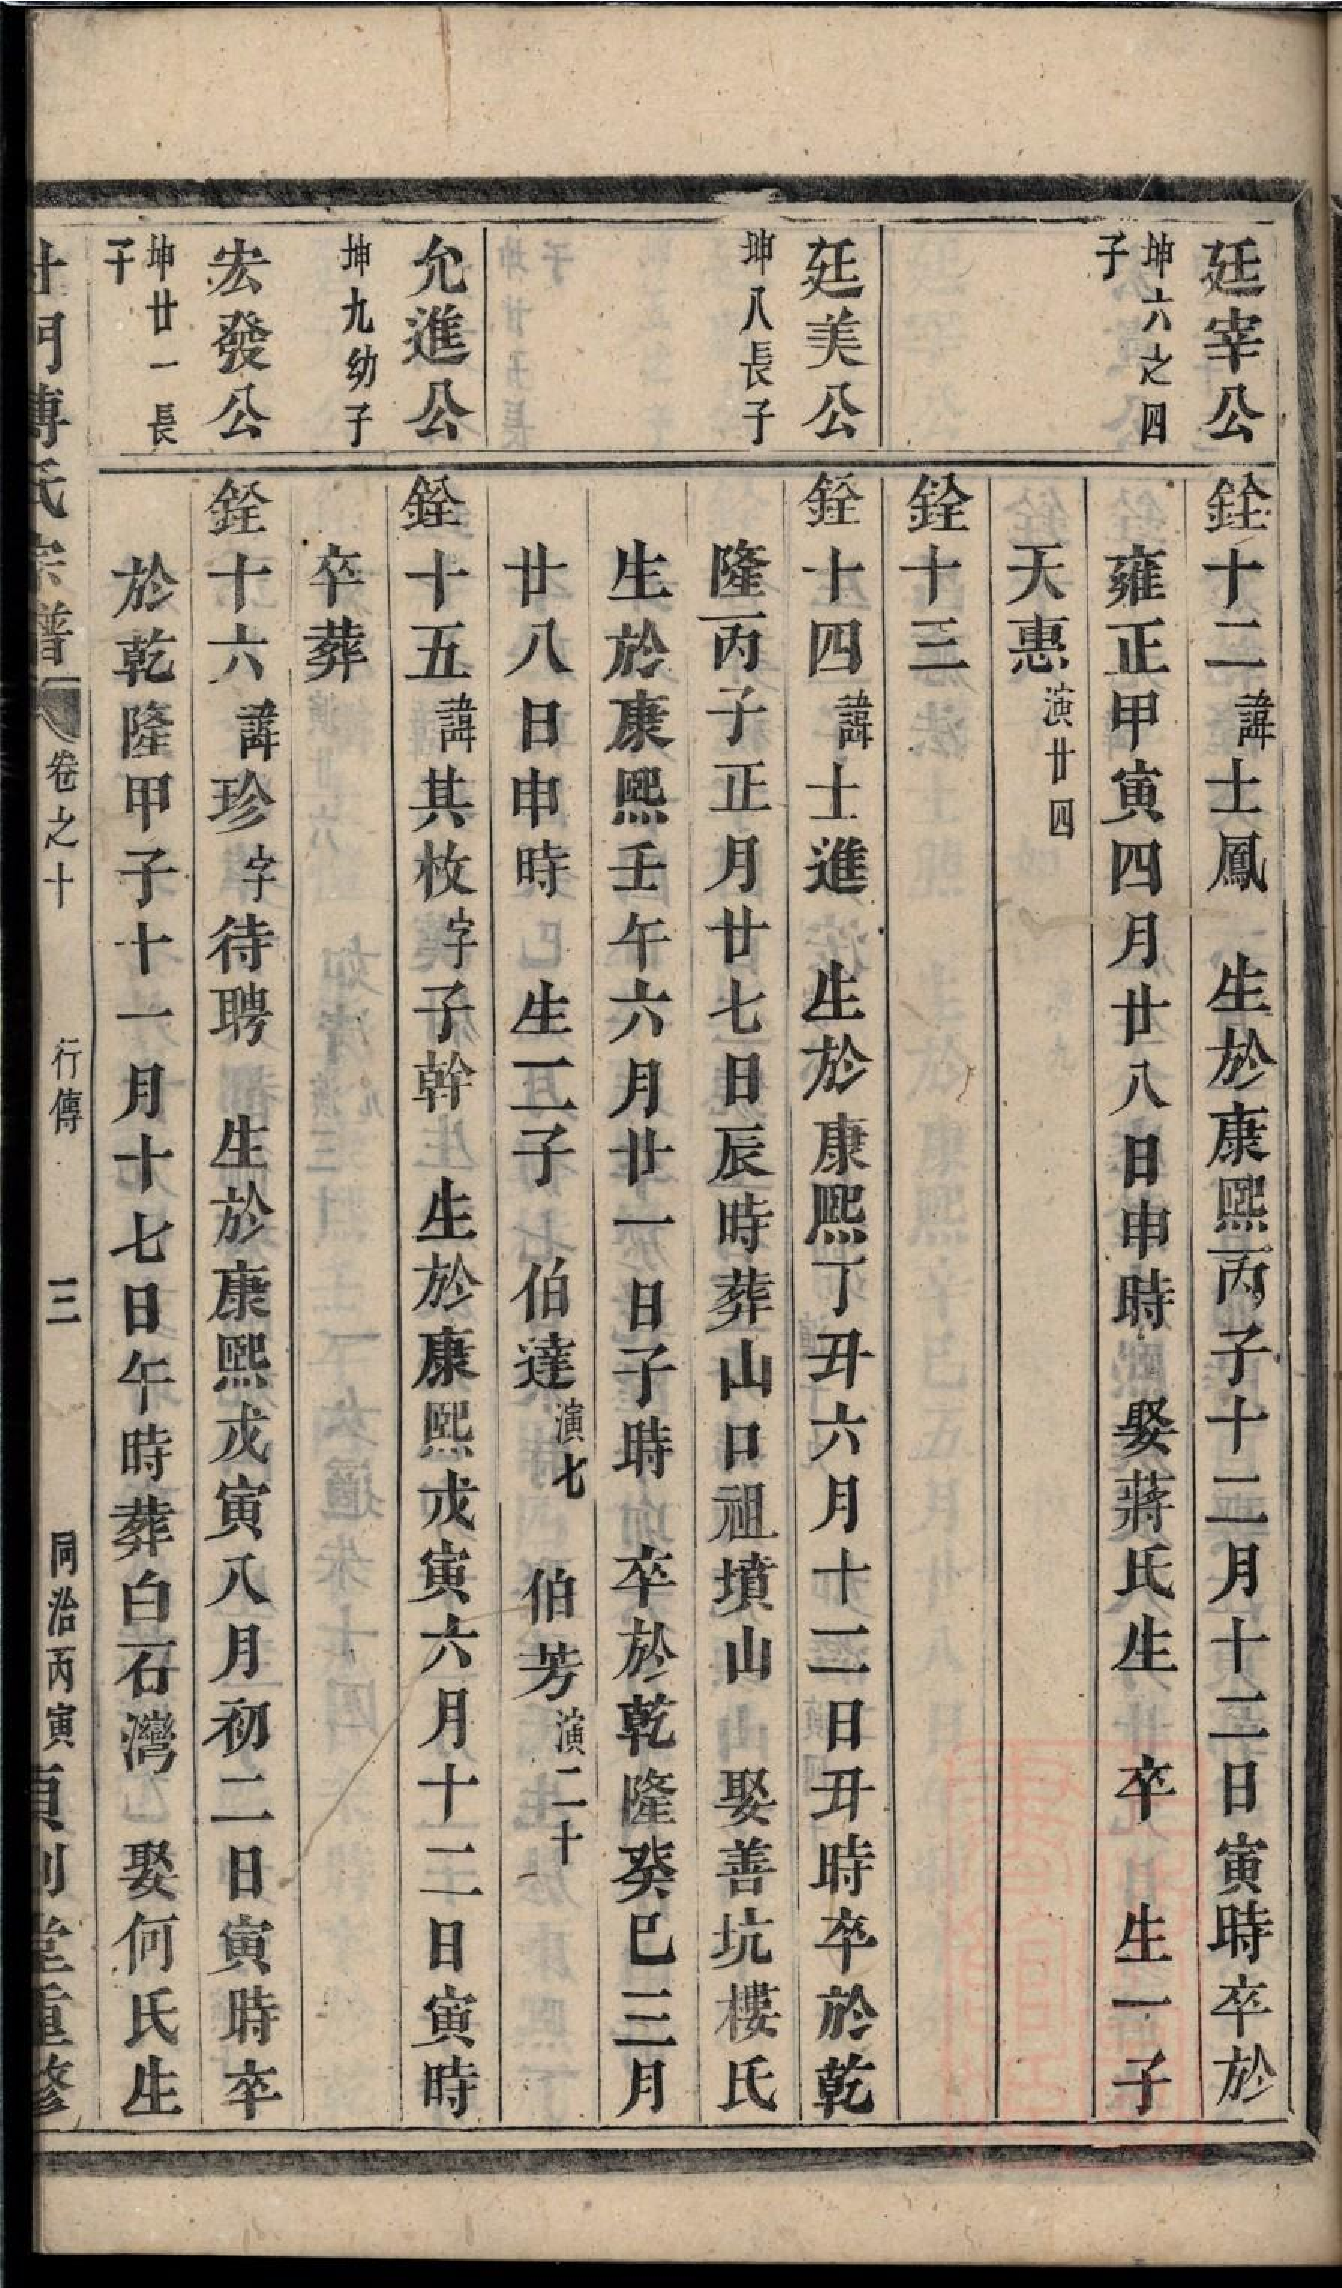 廷宰公
坤六之四
子
銓十二諱士鳳 生於康熙丙子十二月十二日寅時卒於
雍正甲寅四月廿八日申時 娶蔣氏生 卒 生一子
天惠演廿四
銓十三
廷美公
坤八長子
銓十四諱士進 生於康熙丁丑六月十二日丑時卒於乾
隆丙子正月廿七日辰時葬山口祖墳山 娶善坑樓氏
生於康熙壬午六月廿一日子時 卒於乾隆癸巳三月
廿八日申時 生二子 伯達演七 伯芳演二十
允進公
坤九幼子
銓十五諱其枚字子幹 生於康熙戊寅六月十二日寅時
卒葬
宏發公
坤廿一長
子
銓十六諱珍字待聘 生於康熙戊寅八月初二日寅時卒
於乾隆甲子十一月十七日午時葬白石灣 娶何氏生
門傅氏宗譜 卷之十 行傳 三 同治丙寅 堂重修